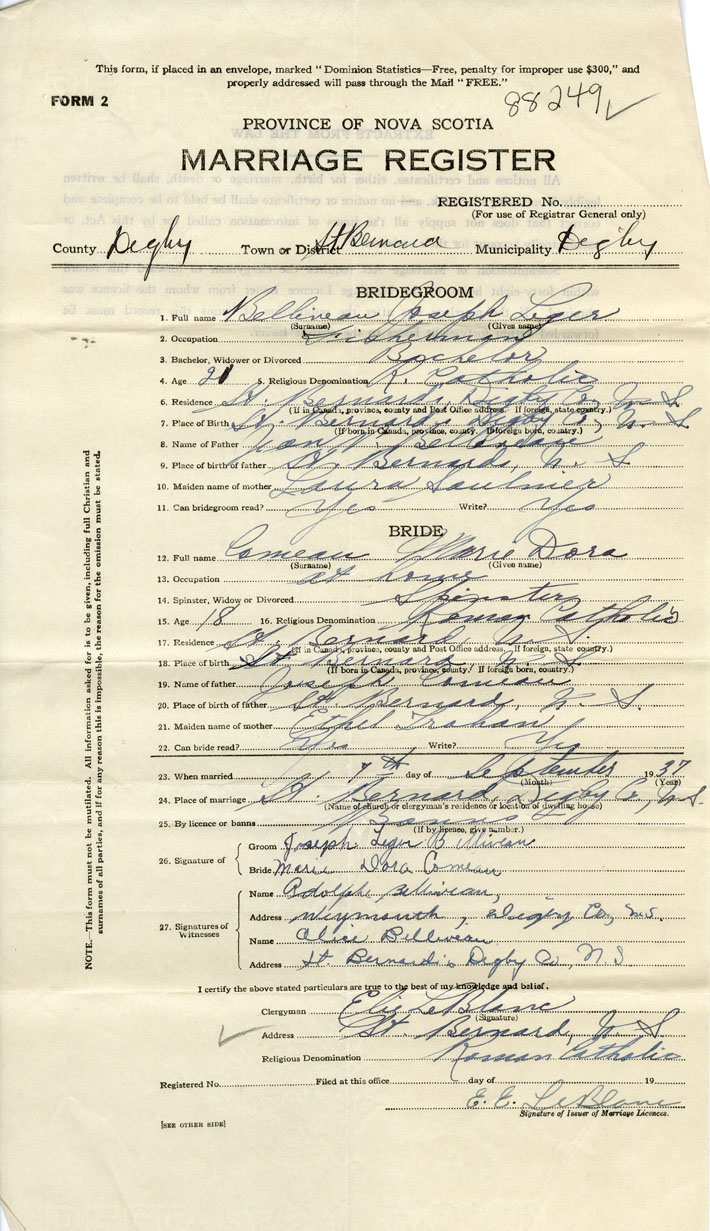 This form, if placed in an envelope, marked "Dominion Statistics—Free, penalty for improper use $300," and
properly addressed will pass through the Mail "FREE."
FORM 2
88249
PROVINCE OF NOVA SCOTIA
MARRIAGE REGISTER
REGISTERED No.
(For use of Registrar General only)
County Digby Town or District St Bernard Municipality Digby
BRIDEGROOM
1. Full name Belliveau Joseph Leger
(Surname) (Given name)
2. Occupation Fisherman
3. Bachelor, Widower or Divorced Bachelor
4. Age 21 5. Religious Denomination R. Catholic
6. Residence St. Bernard, Digby Co., N. S.
(If in Canada, province, county and Post Office address. If foreign, state country.)
7. Place of Birth St. Bernard, Digby Co., N. S
(If born in Canada, province, county. If foreign born, country.)
8. Name of Father Belliveau
9. Place of birth of father St. Bernard, N. S
10. Maiden name of mother Laura Saulnier
11. Can bridegroom read? Yes Write? Yes
BRIDE
12. Full name Comeau Marie Dora
(Surname) (Given name)
13. Occupation at home
14. Spinster, Widow or Divorced Spinster
15. Age 18 16. Religious Denomination Roman Catholic
17. Residence St. Bernard N. S.
(If in Canada, province, county and Post Office address. If foreign, state country.)
18. Place of birth St. Bernard N. S.
(If born in Canada, province, county. If foreign born, country.)
19. Name of father Joseph Comeau
20. Place of birth of father St. Bernard, N. S.
21. Maiden name of mother Ethel Trahan
22. Can bride read? Yes Write? Yes
23. When married 7th day of September 1937
(Month) (Year)
24. Place of marriage St. Bernard, Digby Co, N. S.
(Name of church or clergyman's residence or location of dwelling house)
25. By licence or banns Banns
(If by licence, give number.)
26. Signature of
Groom Joseph Leger Belliveau
Bride Marie Dora Comeau
27. Signatures of Witnesses
Name Adolphe Belliveau,
Address Weymouth, Digby Co, N.S.
Name Alice Belliveau
Address St. Bernard's Digby Co, N. S
I certify the above stated particulars are true to the best of my knowledge and belief.
Clergyman Elie LeBlanc
(Signature)
Address St. Bernard, N. S
Religious Denomination Roman Catholic
Registered No. Filed at this office day of 19
E. E. LeBlanc
Signature of Issuer of Marriage Licences.
[SEE OTHER SIDE]
NOTE.—This form must not be mutilated. All information asked for is to be given, including full Christian and
surnames of all parties, and if for any reason this is impossible, the reason for the omission must be stated.